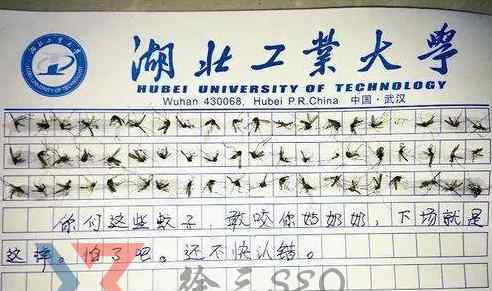 湖北工業大學
HUBEI UNIVERSITY OF TECHNOLOGY
Wuhan 430068, Hubei P.R.China 中国·武汉
你们这些蚊子，敢咬你奶奶奶，下场就是
这样。怕了吧。还不快认错。
徐三SEO